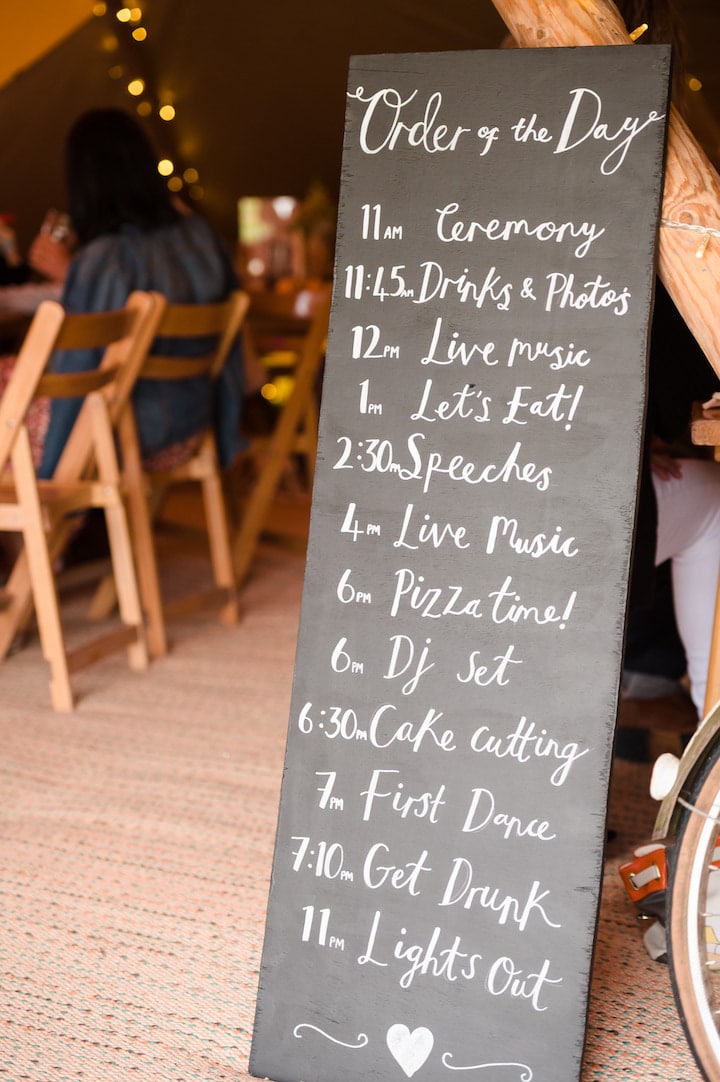 Order of the Day
11AM Ceremony
11:45AM Drinks & Photo's
12PM Live music
1PM Let's Eat!
2:30PM Speeches
4PM Live Music
6PM Pizza time!
6PM Dj set
6:30PM Cake cutting
7PM First Dance
7:10PM Get Drunk
11PM Lights Out